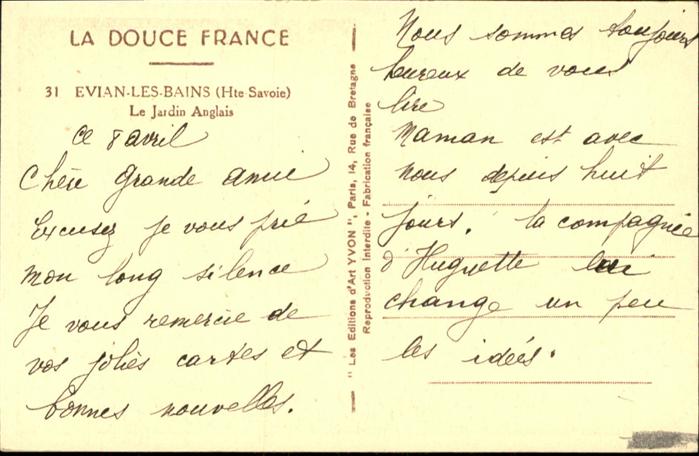 LA DOUCE FRANCE
31 EVIAN-LES-BAINS (Hte Savoie)
Le Jardin Anglais
Ce 8 avril
Chère grande amie
Excusez je vous prie
mon long silence
Je vous remercie de
vos jolies cartes et
bonnes nouvelles.
" Les Editions d'Art YVON ", Paris, 14, Rue de Bretagne
Reproduction Interdite - Fabrication française
Nous sommes toujours
heureux de vous
lire
Maman est avec
nous depuis huit
jours. la compagnie
d'Huguette lui
change un peu
les idées.